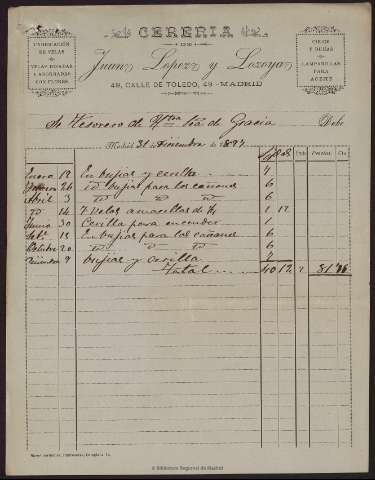 CERERIA
DE
Juan Lopez y Lozoya
49, CALLE DE TOLEDO, 49 - MADRID
FABRICACIÓN
DE VELAS
VELAS RIZADAS
Y ADORNADAS
CON FLORES
CIRIOS
Y BUJIAS
LAMPARILLAS
PARA
ACEITE
Sr Tesorero de Ntra Sra de Gracia Debe
Madrid 31 Diciembre de 1897
Enero 12 En bujias y cerilla 7
Febrero 26 id bujias para los cañones 6
Abril 3 id id id 6
id 14 7 Velas amarillas de 1 12
Junio 30 Cerilla para encender 6
Sebe 15 En bujias para los cañones 6
Octubre 20 id id id 6
Diciembre 9 bujias y cerilla 7
Total 40 12 2 81
© Biblioteca Regional de Madrid